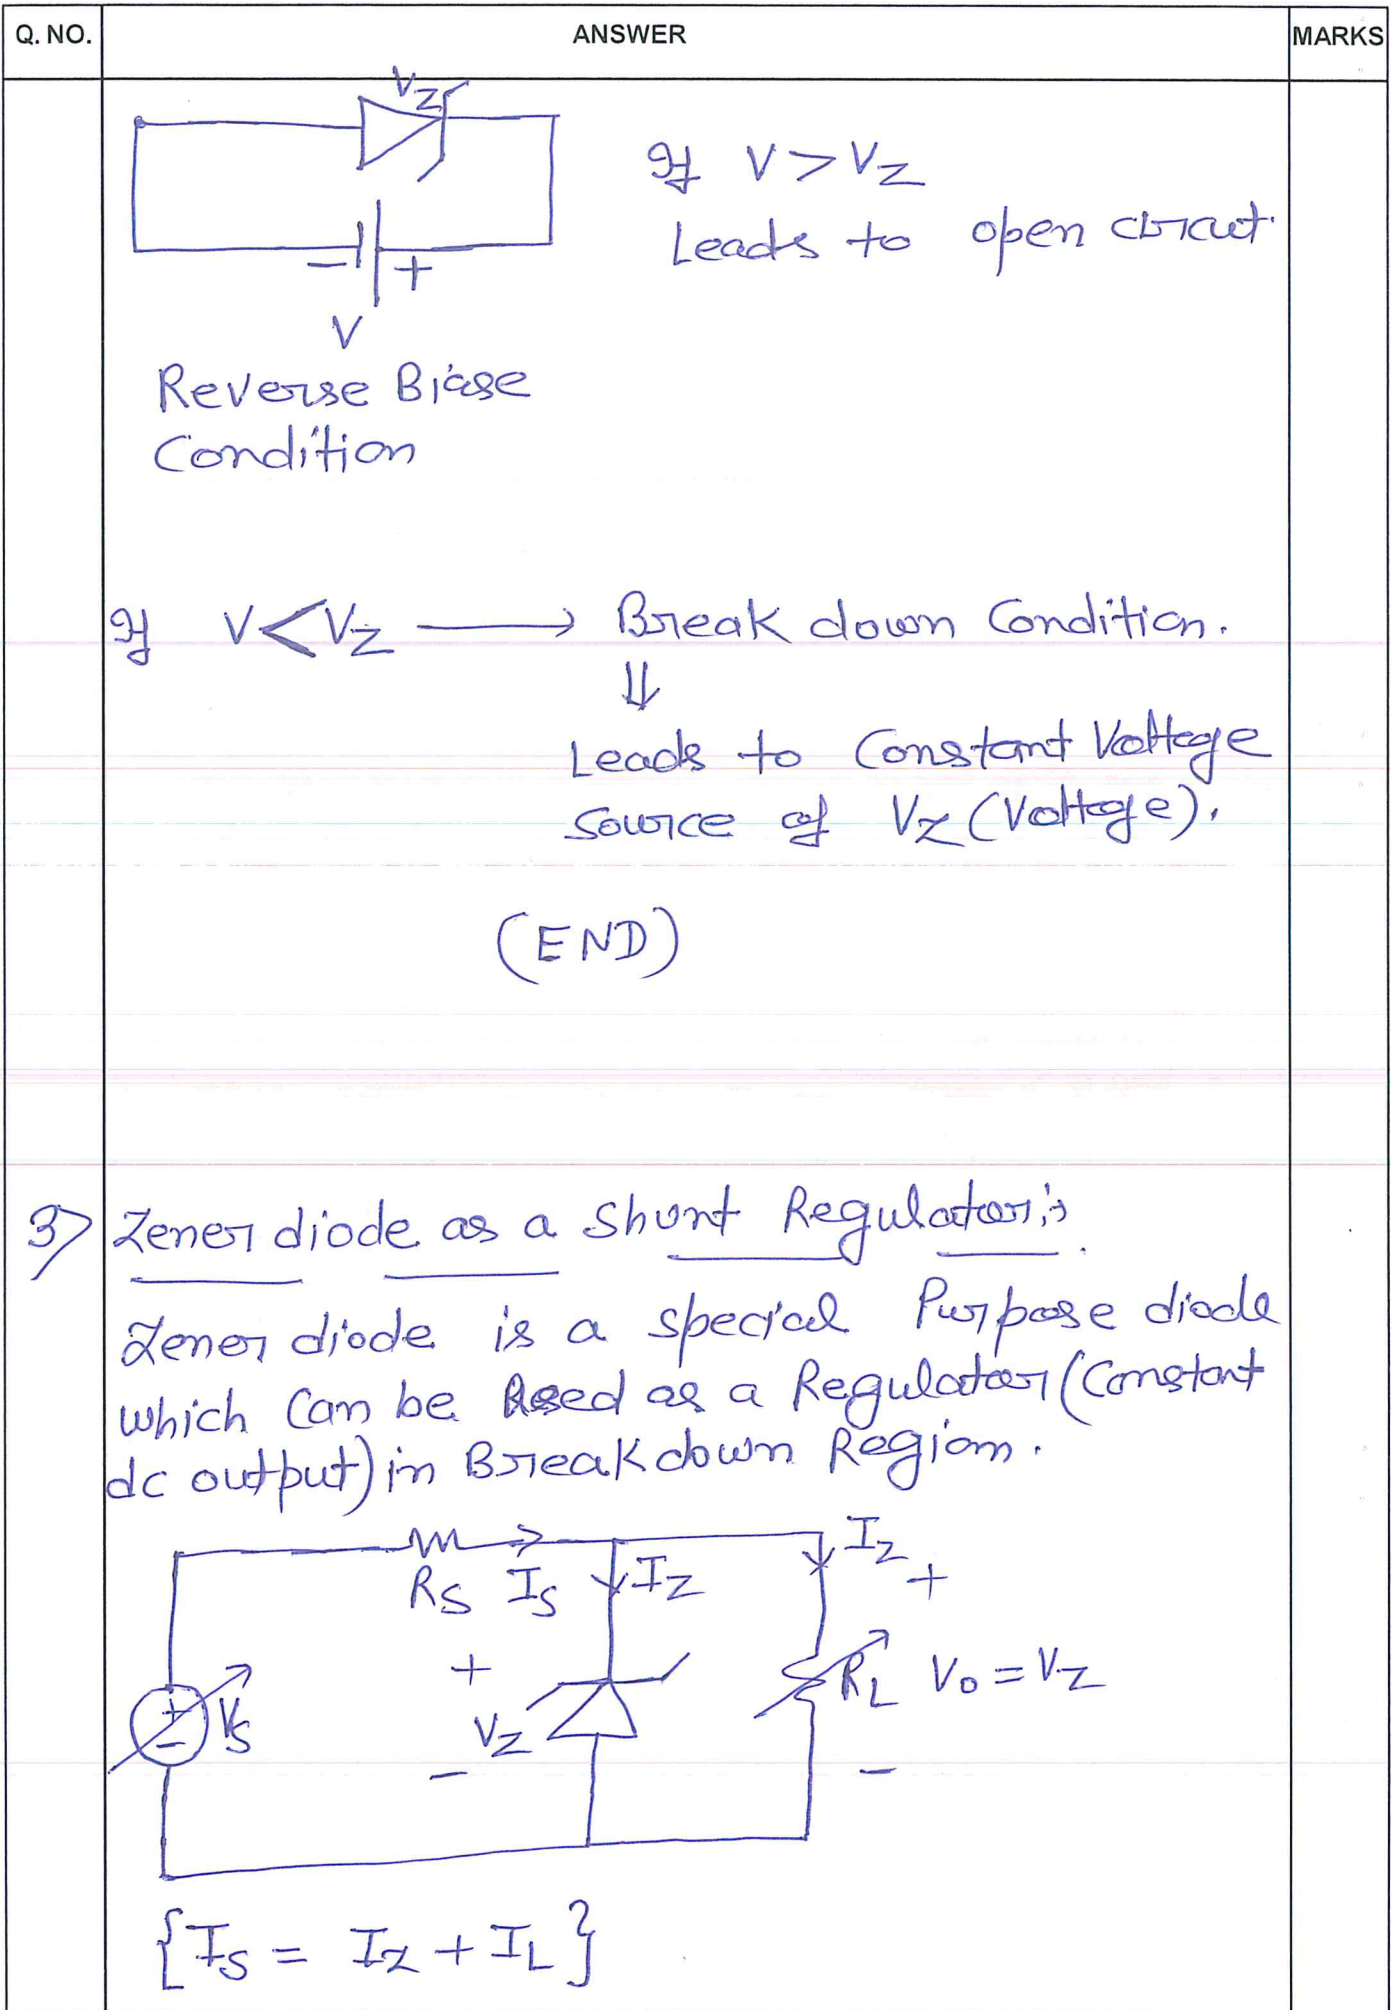 Q. NO. ANSWER MARKS
VZ
If V > VZ
Leads to open circuit.
- +
V
Reverse Biase
Condition
If V < VZ → Break down Condition.
⇓
Leads to Constant Voltage
Source of VZ (Voltage).
(END)
3) Zener diode as a Shunt Regulator:
Zener diode is a special Purpose diode
which Can be Used as a Regulator (Constant
dc output) in Break down Region.
RS IS IZ IZ +
+ RL V0 = VZ
+ - VS VZ
- -
{IS = IZ + IL}